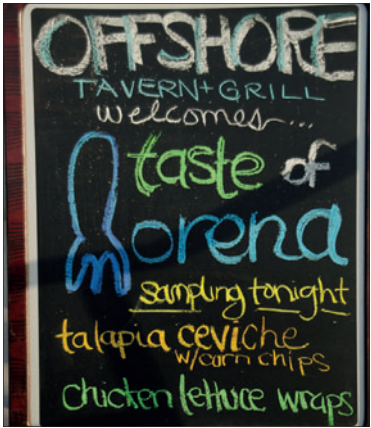 OFFSHORE
TAVERN + GRILL
welcomes...
taste of
Morena
sampling tonight
talapia ceviche
w/corn chips
chicken lettuce wraps